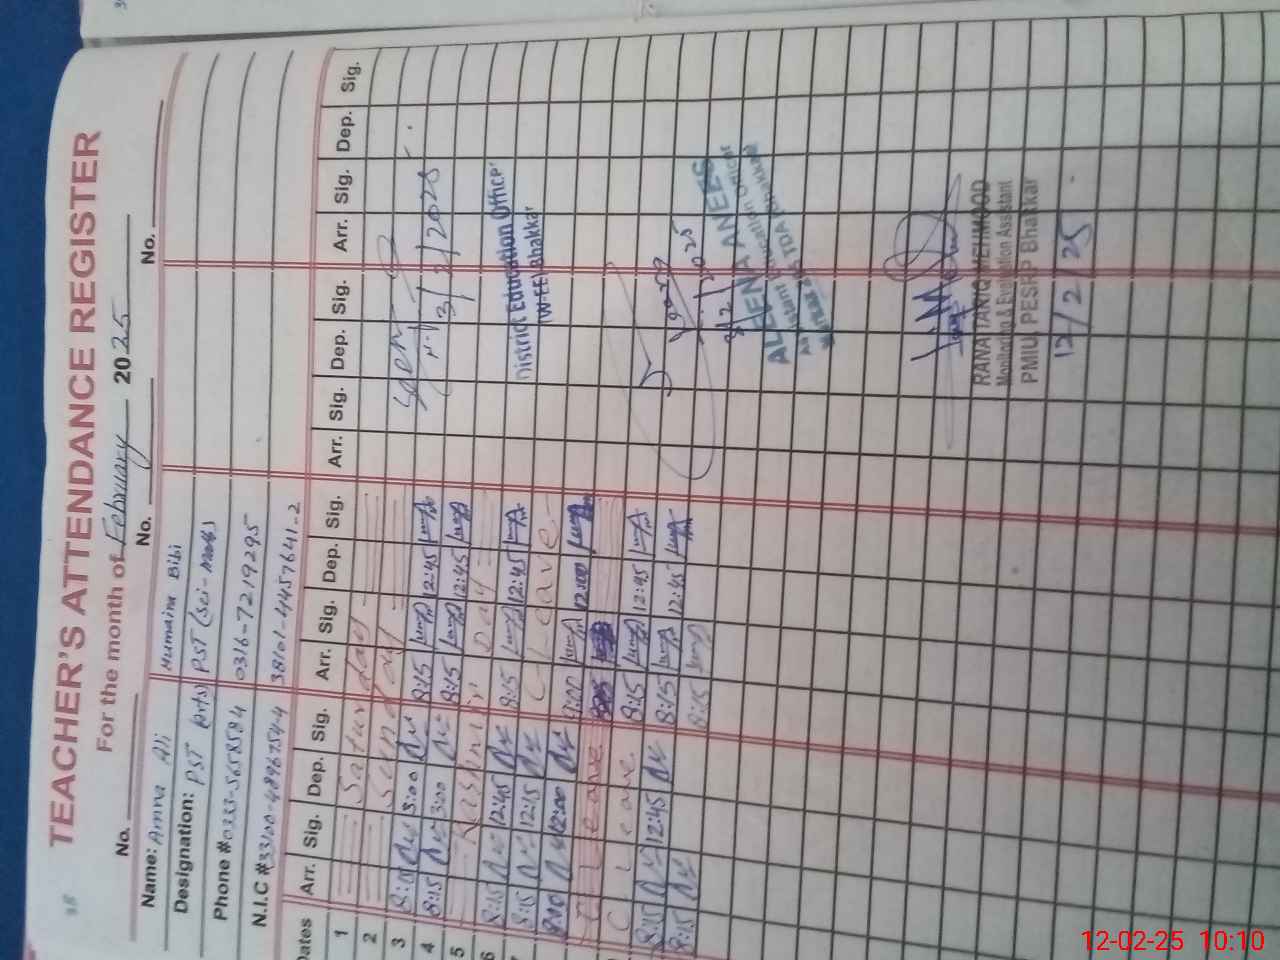 38
TEACHER'S ATTENDANCE REGISTER
For the month of February 2025
No. No. No.
Name: Amna Ali Humaira Bibi
Designation: PST (Arts) PST (Sci-Math)
Phone # 0333-5658584 0316-7219295
N.I.C # 33100-4896754-4 38101-4457641-2
Dates Arr. Sig. Dep. Sig. Arr. Sig. Dep. Sig. Arr. Sig. Dep. Sig. Arr. Sig. Dep. Sig.
1 Saturday
2 Sunday
3 8:15 3:00 8:15 12:45
4 8:15 3:00 8:15 12:45
5 Kashmir Day
6 8:15 12:45 8:15 12:45
8:15 12:15 C Leave
9:00 12:00 9:00 12:00
Leave
C Leave 8:15 12:45
8:15 12:45 8:15 12:45
8:15 8:15
3/2/2025
District Education Officer
(W-EE) Bhakkar
8/2/2025
ALEENA ANEES
Assistant Education Officer
RANA TARIQ MEHMOOD
Monitoring & Evaluation Assistant
PMIU, PESRP Bhakkar
12/2/25
12-02-25 10:10